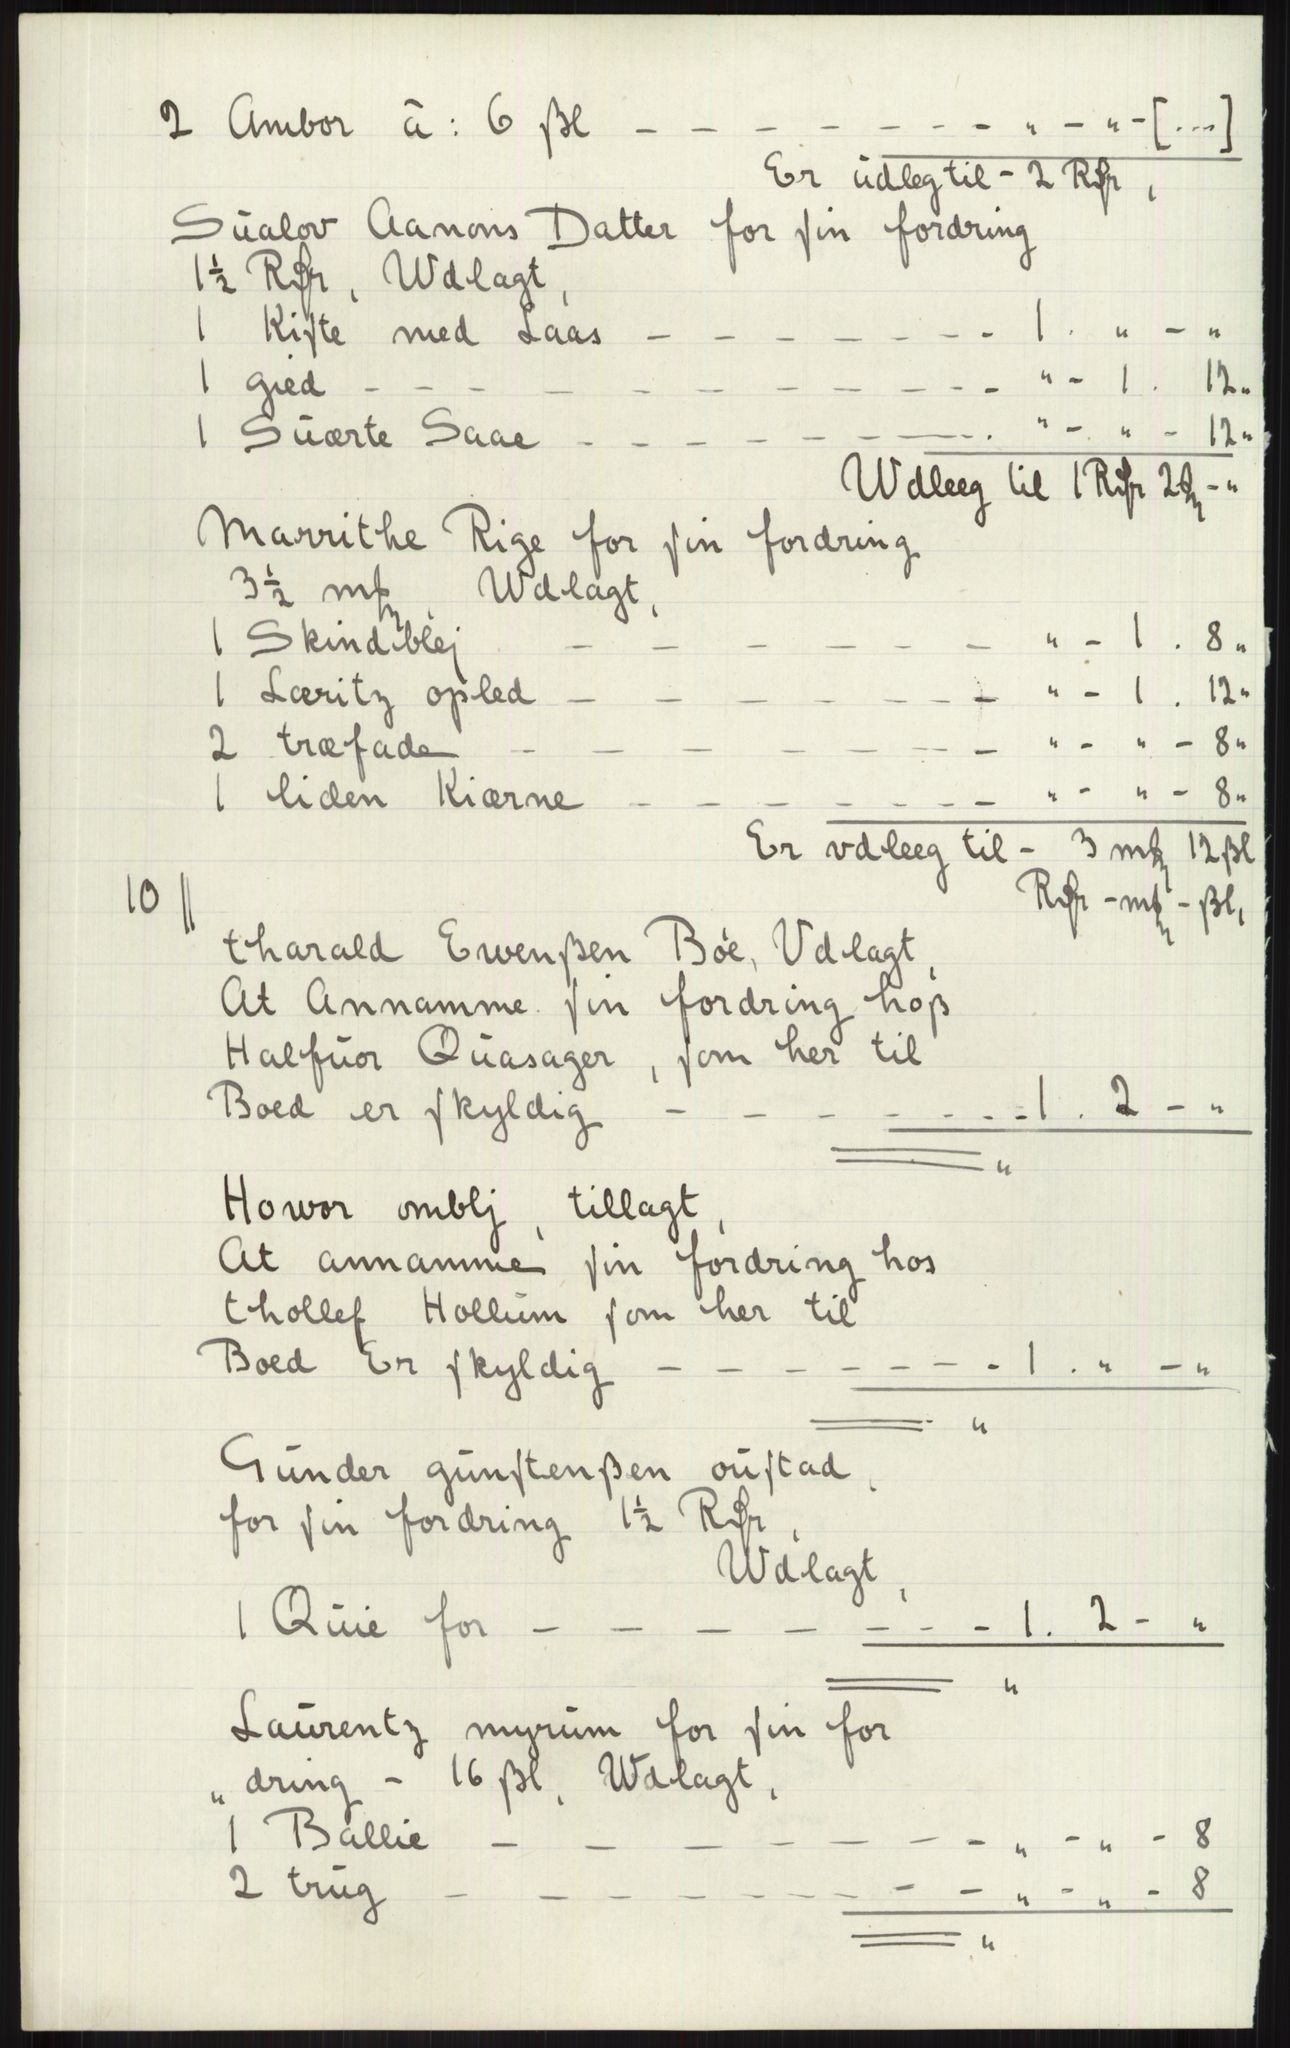 2 Ambor ā: 6 ßl - - - - - - - - - „ - „ - [...]
Er ūdlegtil - 2 Rdr,
Sūalov Aanons Datter for ſin fordring
1½ Rdr, Wdlagt,
1 Kiſte med Laas - - - - - - - - 1 . „ - „
1 gied - - - - - - - - - - - „ - 1 . 12„
1 Sūærte Saae - - - - - - - . „ - „ - 12„
Wdleeg til 1 Rdr 2 mk - „
Marrithe Rige for ſin fordring
3½ mk, Wdlagt,
1 Skindblej - - - - - - - „ - 1 . 8„
1 Læritz opled - - - - - - - „ - 1 . 12„
2 træfade - - - - - - - - „ - „ - 8„
1 liden Kiærne - - - - - - - „ - „ - 8„
Er vdleeg til - 3 mk 12 ßl
Rdr - mk - ßl,
10 ||
tharald Ewenßen Bóe, Vdlagt,
At Annamme ſin fordring hoß
Halfūor Qūasager, ſom her til
Boed er ſkyldig - - - - - - - 1 . 2 - „
„
Howor omblj, tillagt,
At annamme ſin fordring hos
thollef Hollūm ſom her til
Boed Er ſkyldig - - - - - - - - 1 . „ - „
„
Gūnder gūnſtenßen oūſtad,
for ſin fordring 1½ Rdr,
Wdlagt,
1 Qūie for - - - - - - - 1. 2 - „
„
Laūrentz myrūm for ſin for
„dring - 16 ßl, Wdlagt,
1 Ballie - - - - - - - - „ - „ - 8
2 trūg - - - - - - - - - - „ - „ - 8
„